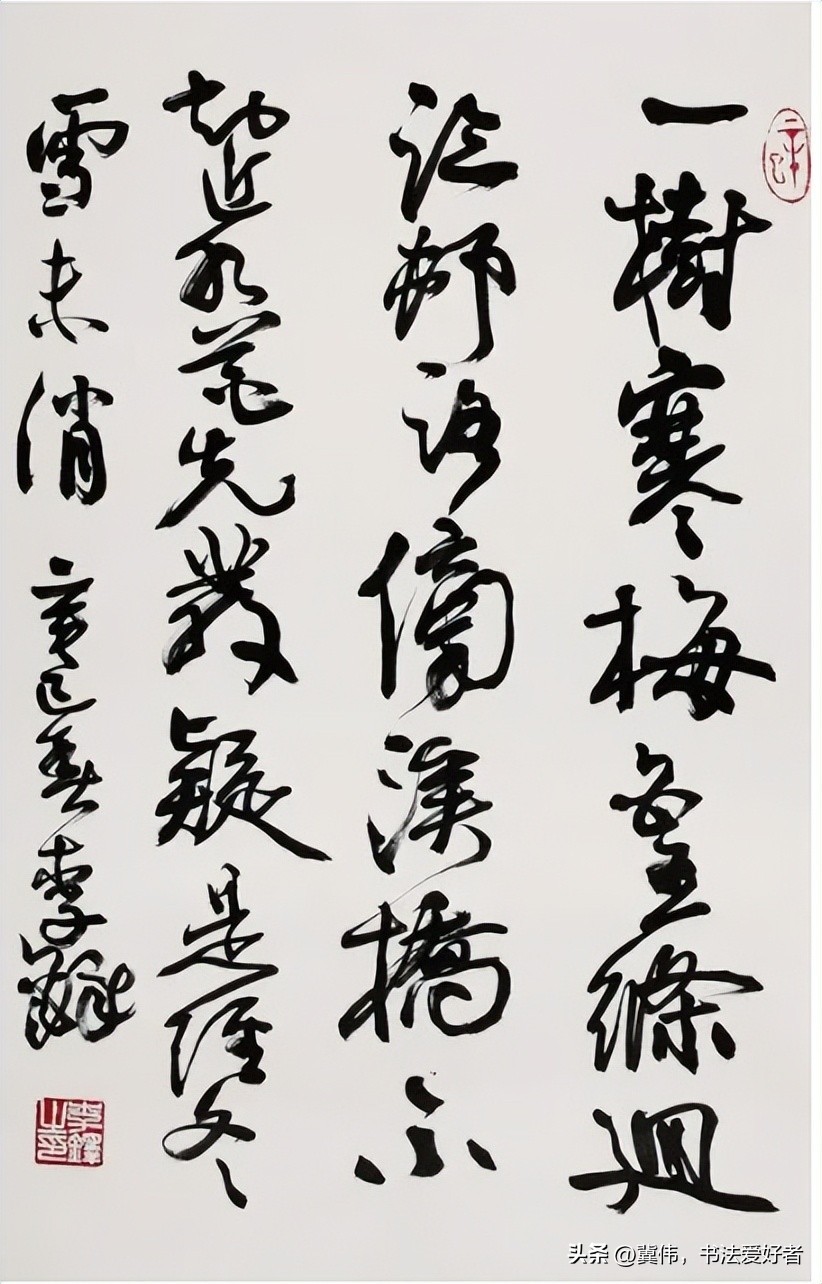 一樹寒梅白玉條迥
臨邨路傍溪橋不
知近水花先發疑是經冬
雪未消 辛巳春李鐸
李鐸之印
头条 @冀伟，书法爱好者